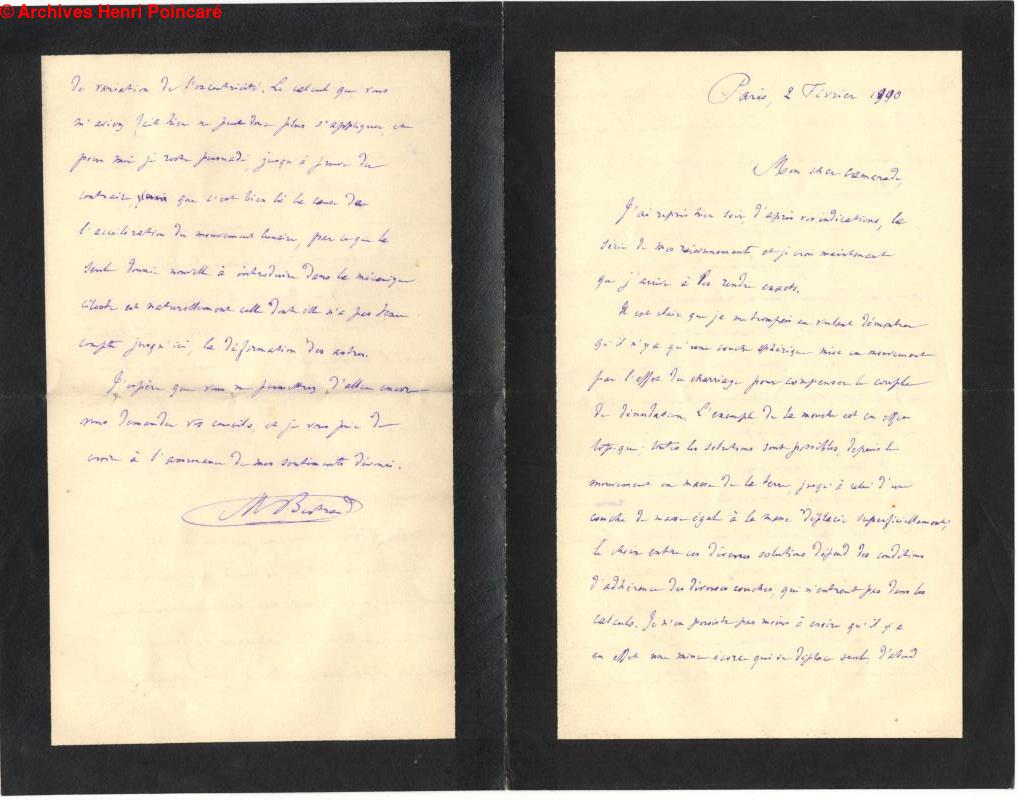 © Archives Henri Poincaré
Paris, 2 Février 1900
Mon cher Camarade,
J'ai repris hier soir d'après vos indications, la
série de mes raisonnements, et je crois maintenant
que j'arrive à les rendre exacts.
Il est clair que je me trompais en voulant démontrer
qu'il n'y a qu'une couche sphérique mise en mouvement
par l'effet du charriage pour compenser le couple
de dénudation. L'exemple de la mouche est en effet
topique: toutes les solutions sont possibles, depuis le
mouvement en masse de la terre, jusqu'à celui d'une
couche de masse égale à la masse déplacée superficiellement;
le choix entre ces diverses solutions dépend des conditions
d'adhérence des diverses couches, qui n'entrent pas dans les
calculs. Je n'en persiste pas moins à croire qu'il y a
en effet une mince écorce qui se déplace seule d'abord
de variation de l'excentricité. Le calcul que vous
m'aviez fait hier ne peut donc plus s'appliquer, et
pour moi je reste persuadé, jusqu'à preuve du
contraire, que c'est bien là la cause de
l'accélération du mouvement lunaire, parce que la
seule donnée nouvelle à introduire dans la mécanique
céleste est naturellement celle dont elle n'a pas tenu
compte jusqu'ici, la déformation des astres.
J'espère que vous me permettrez d'aller encore
vous demander vos conseils, et je vous prie de
croire à l'assurance de mes sentiments dévoués.
M Bertrand